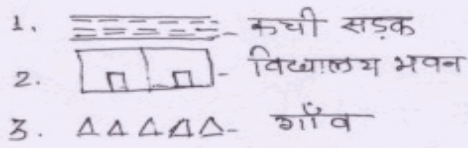 1. - कची सड़क
2. - विद्यालय भवन
3. - गाँव